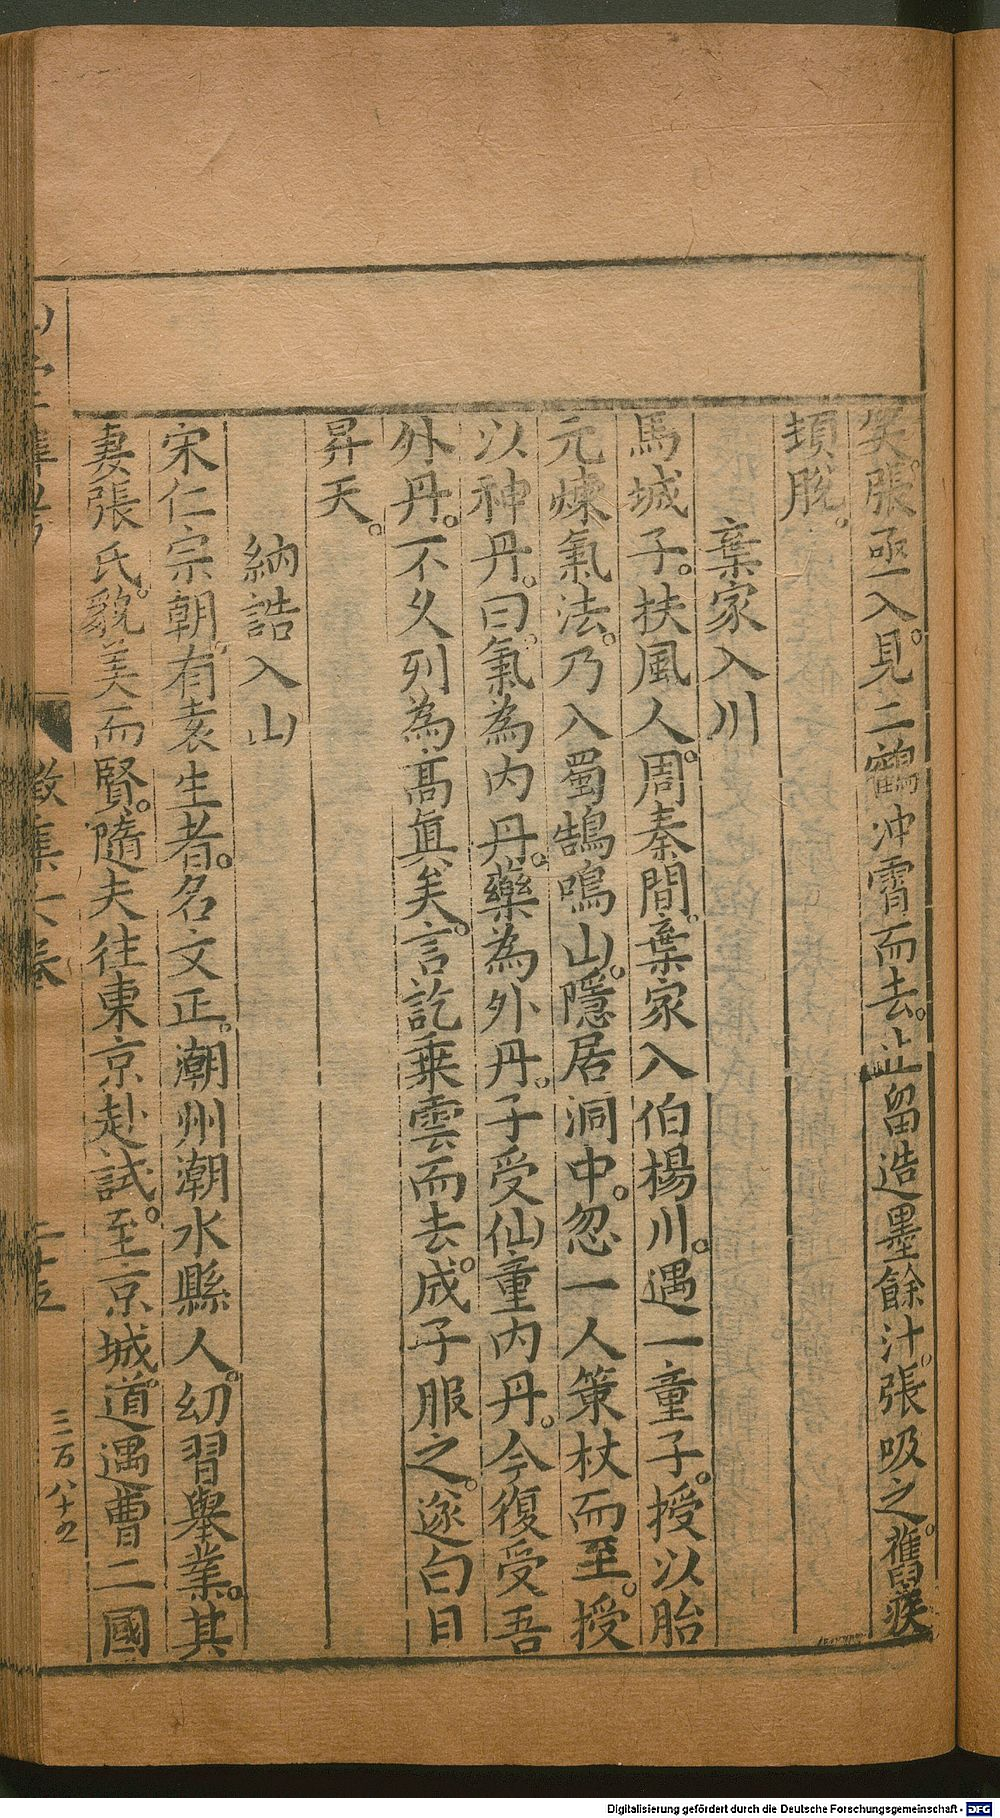 笑。張亟入見。二鶴冲霄而去。止留造墨餘汁。張吸之。舊痰
頓脫。
棄家入川
馬城子。扶風人。周秦間。棄家入伯楊川。遇一童子。授以胎
元煉氣法。乃入蜀鵠鳴山。隱居洞中。忽一人策杖而至。授
以神丹。曰。氣為內丹。藥為外丹。子受仙童內丹。今復受吾
外丹。不久列為高眞矣。言訖乗雲而去。成子服之。遂白日
昇天。
納誥入山
宋仁宗朝。有袁生者。名文正。潮州潮水縣人。幼習舉業。其
妻張氏。貌美而賢。隨夫徃東京赴試。至京城。道遇曹二國
徵集六卷
二十五
三百八十九
Digitalisierung gefördert durch die Deutsche Forschungsgemeinschaft - DFG